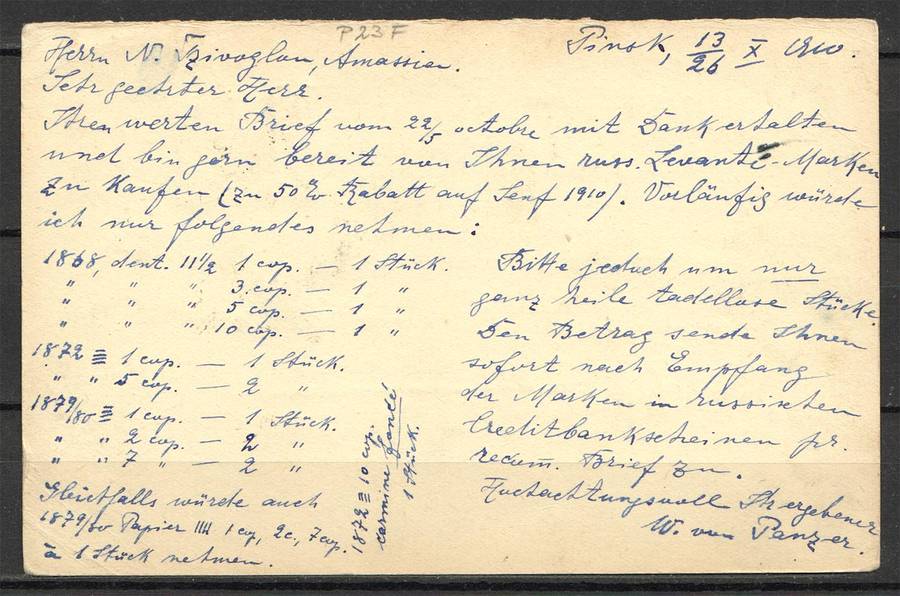 P23F
Pinsk, 13/26 X 1910.
Herrn N. Tzivoglou, Amassia.
Sehr geehrter Herr.
Ihren werten Brief vom 22/5 octobre mit Dank erhalten
und bin gern bereit von Ihnen russ. Levante-Marken
zu Kaufen (zu 50% Rabatt auf Senf 1910). Vorläufig würde
ich nur folgendes nehmen:
1868, dent. 11 1/2 1 cop. — 1 Stück.
" " " 3 cop. — 1 "
" " " 5 cop. — 1 "
" " " 10 cop. — 1 "
1872 ≡ 1 cop. — 1 Stück.
" " 5 cop. — 2 "
1879/80 ≡ 1 cop. — 1 Stück.
" " 2 cop. — 2 "
" " 7 " — 2 "
Gleichfalls würde auch
1879/80 Papier |||| 1 cop, 2 c., 7 cop.
à 1 Stück nehmen.
1872 ≡ 10 cop.
carmine foncé
1 Stück.
Bitte jedoch um nur
ganz heile tadellose Stücke.
Den Betrag sende Ihnen
sofort nach Empfang
der Marken in russischen
Creditbankscheinen pr.
recom. Brief zu.
Hochachtungsvoll Ihr ergebener
W. von Panzer.